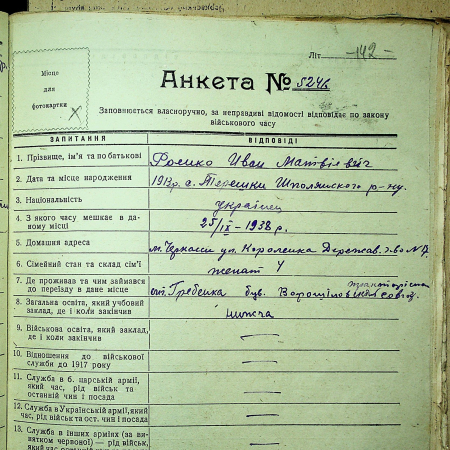 Літ -142-
Місце
для
фотокартки
Анкета № 5246
Заповнюється власноручно, за неправдиві відомості відповідає по закону
військового часу
ЗАПИТАННЯ ВІДПОВІДІ
1. Прізвище, ім'я та по батькові Фосико Иван Матвієвич
2. Дата та місце народження 1913р. с. Терешки Шполянского р-ну.
3. Національність українец
4. З якого часу мешкає в да-
ному місці 25/IX - 1938 р.
5. Домашня адреса м. Черкассы ул. Короленка Державне
6. Сімейний стан та склад сім'ї женат 4
7. Де проживав та чим займався
до переїзду в дане місце ст. Гребенка був.
8. Загальна освіта, який учбовий
заклад, де і коли закінчив нижча
9. Військова освіта, який заклад,
де і коли закінчив —
10. Відношення до військової
служби до 1917 року —
11. Служба в б. царській армії,
який час, рід військ та
останній чин і посада —
12. Служба в Українській армії, який
час, рід військ та ост. чин і посада —
13. Служба в інших арміях (за ви-
нятком червоної) — рід військ, —